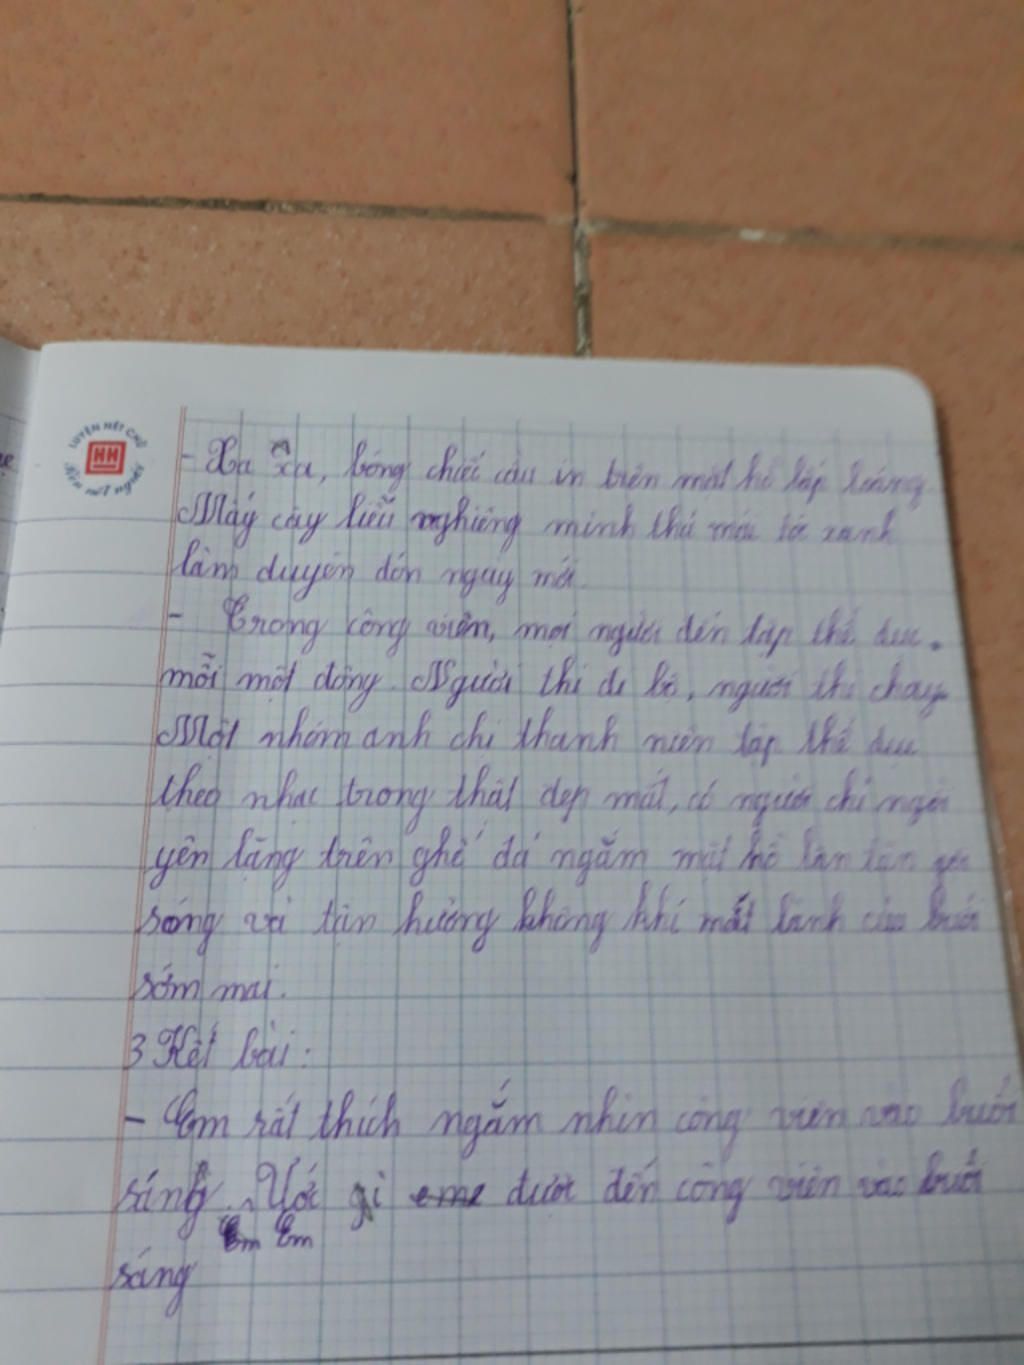 LUYỆN NÉT CHỮ
HH
RÈN NẾT NGƯỜI
- Xa xa, bóng chiếc cầu in trên mặt hồ lấp loáng
Mấy cây liễu nghiêng mình thả mái tóc xanh
làm duyên đón ngày mới.
- Trong công viên, mọi người đến tập thể dục.
mỗi một đông. Người thì đi bộ, người thì chạy
Một nhóm anh chị thanh niên tập thể dục
theo nhạc trong thật đẹp mắt, có người chỉ ngồi
yên lặng trên ghế đá ngắm mặt hồ lăn tăn gợn
sóng và tận hưởng không khí mát lành của buổi
sớm mai.
3 Kết bài:
- Em rất thích ngắm nhìn công viên vào buổi
sáng. Ước gì em được đến công viên vào buổi
Em Em
sáng